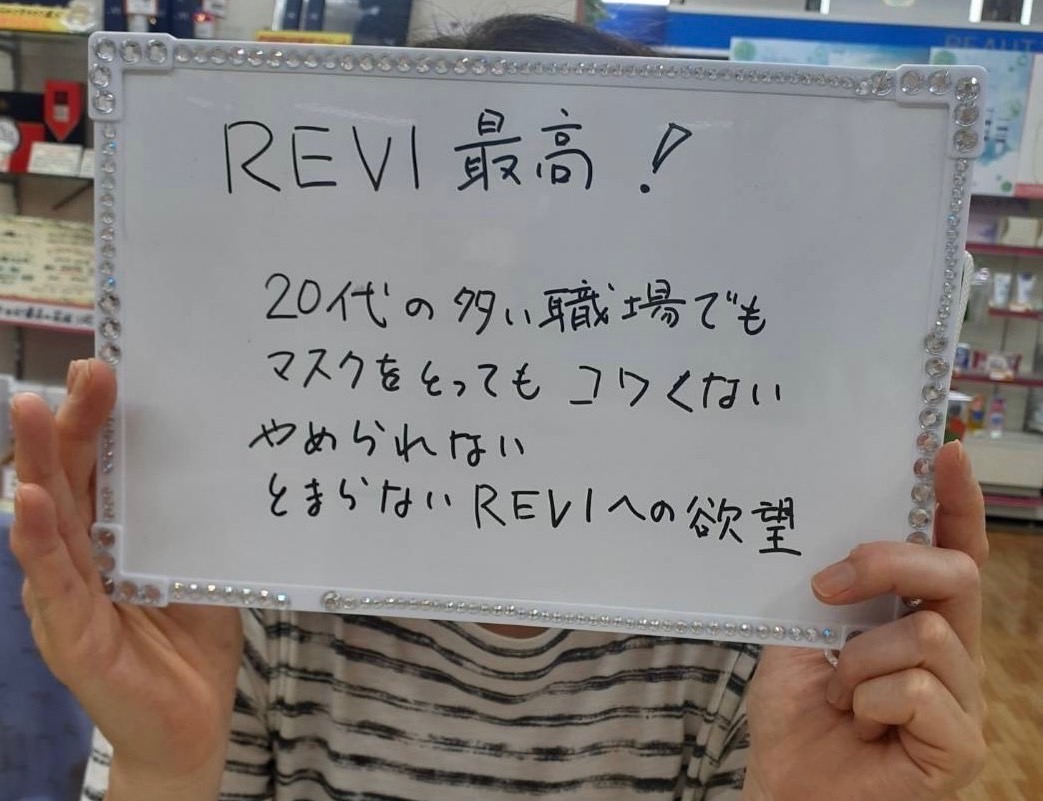 REVI 最高！
20代の多い職場でも
マスクをとってもコワくない
やめられない
とまらないREVIへの欲望
BEAUT